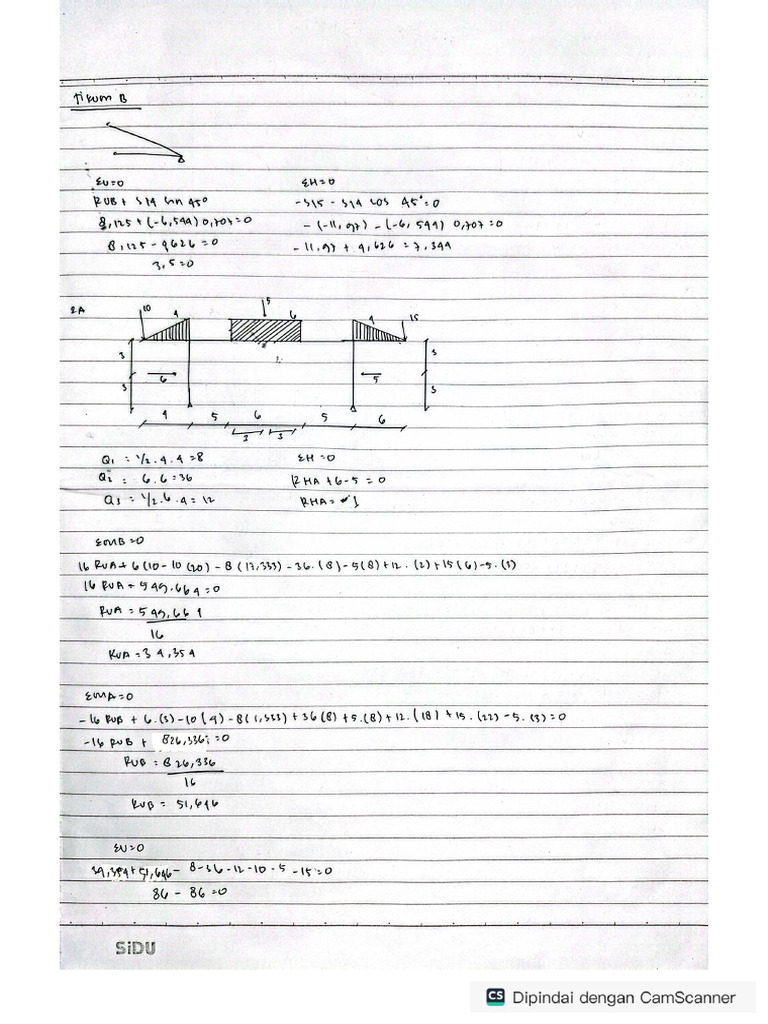 Tikum B
B
ΣV=0 ΣH=0
RVB + S14 sin 45° -S15 - S14 cos 45°=0
8,125 + (-6,544) 0,707=0 - (-11,97) - (-6,544) 0,707=0
8,125 - 4626=0 -11,97 + 4,626 = 7,344
3,5=0
2A
10 4 5 6 4 15
3 3
6 5
3 3
4 5 6 5 6
3 3
Q1 : 1/2 . 4 . 4 =8 ΣH=0
Q2 : 6.6=36 RHA +6-5 = 0
Q3 : 1/2.6.4 = 12 RHA= 1
ΣMB=0
16 RVA+6(10-10(20) - 8(17,333) - 36.(8)-5(8)+12.(2)+15(6)-5.(3)
16 RVA - 549.664=0
RVA = 549,664
16
RVA =34,354
ΣMA=0
-16 RVB + 6.(3)-10(4)-8(1,333)+36(8)+5.(8)+12.(18)+15.(22)-5.(3)=0
-16 RVB + 826,336 =0
RVB = 826,336
16
RVB = 51,646
ΣV=0
34,354+51,646- 8-36-12-10-5-15=0
86 - 86=0
SiDU
CS Dipindai dengan CamScanner